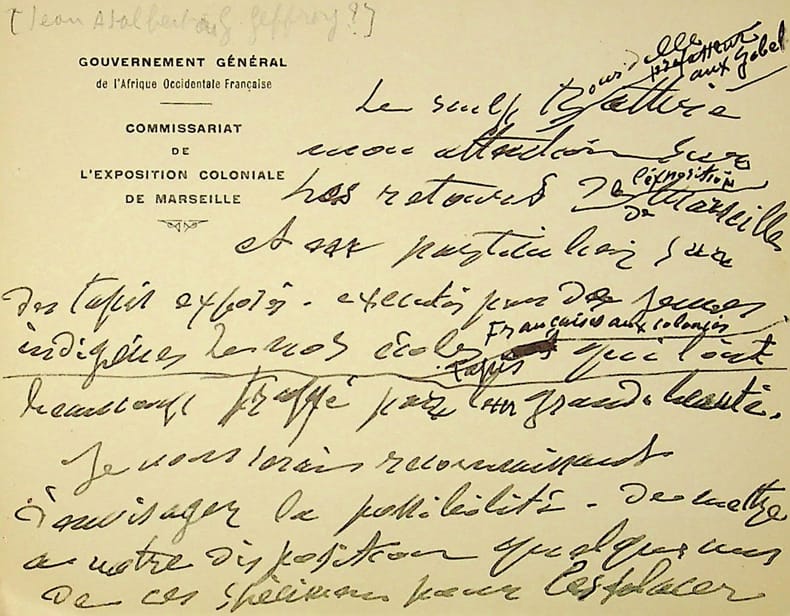 [Jean Adalbert à G. Geffroy?]
GOUVERNEMENT GÉNÉRAL
de l'Afrique Occidentale Française
COMMISSARIAT
DE
L'EXPOSITION COLONIALE
DE MARSEILLE
aux Gobel
Le sculp attiré
mon attention sur
les retours de l'exposition
de Marseille
et en particulier sur
des tapis exposés - executés par de jeunes
indigènes de nos écoles Françaises aux colonies
tapis qui l'ont
beaucoup frappé par leur grande beauté.
Je vous serais reconnaissant
d'envisager la possibilité - de mettre
a notre disposition quelques uns
de ces spécimens pour les placer